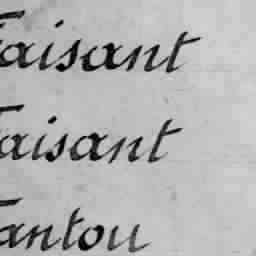 Faisant
Faisant
Fantou